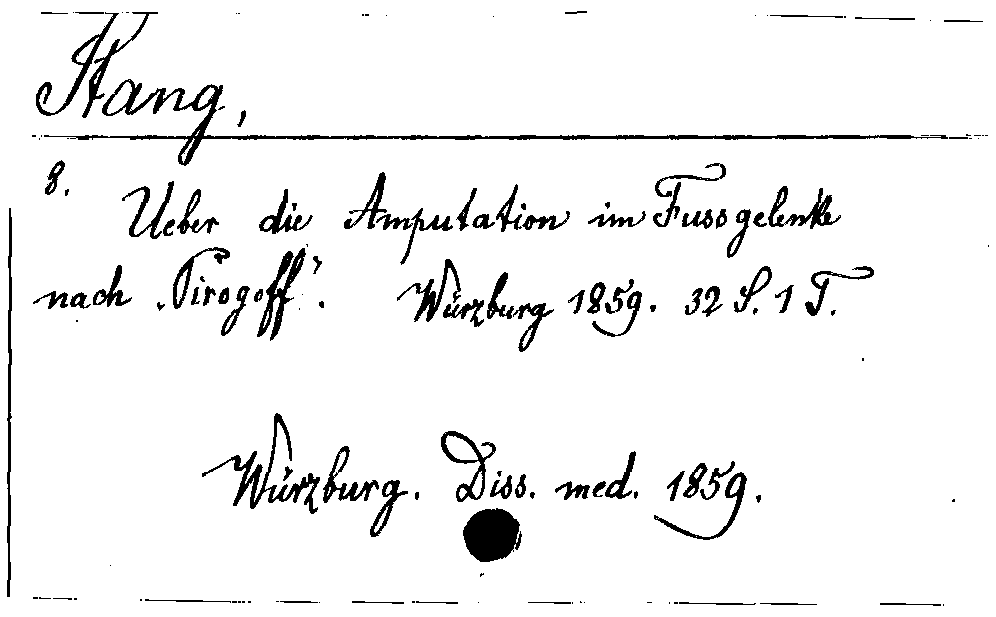 Stang,
8.
Ueber die Amputation im Fussgelenke
nach „Pirogoff“. Würzburg 1859. 32 S. 1 T.
Würzburg. Diss. med. 1859.